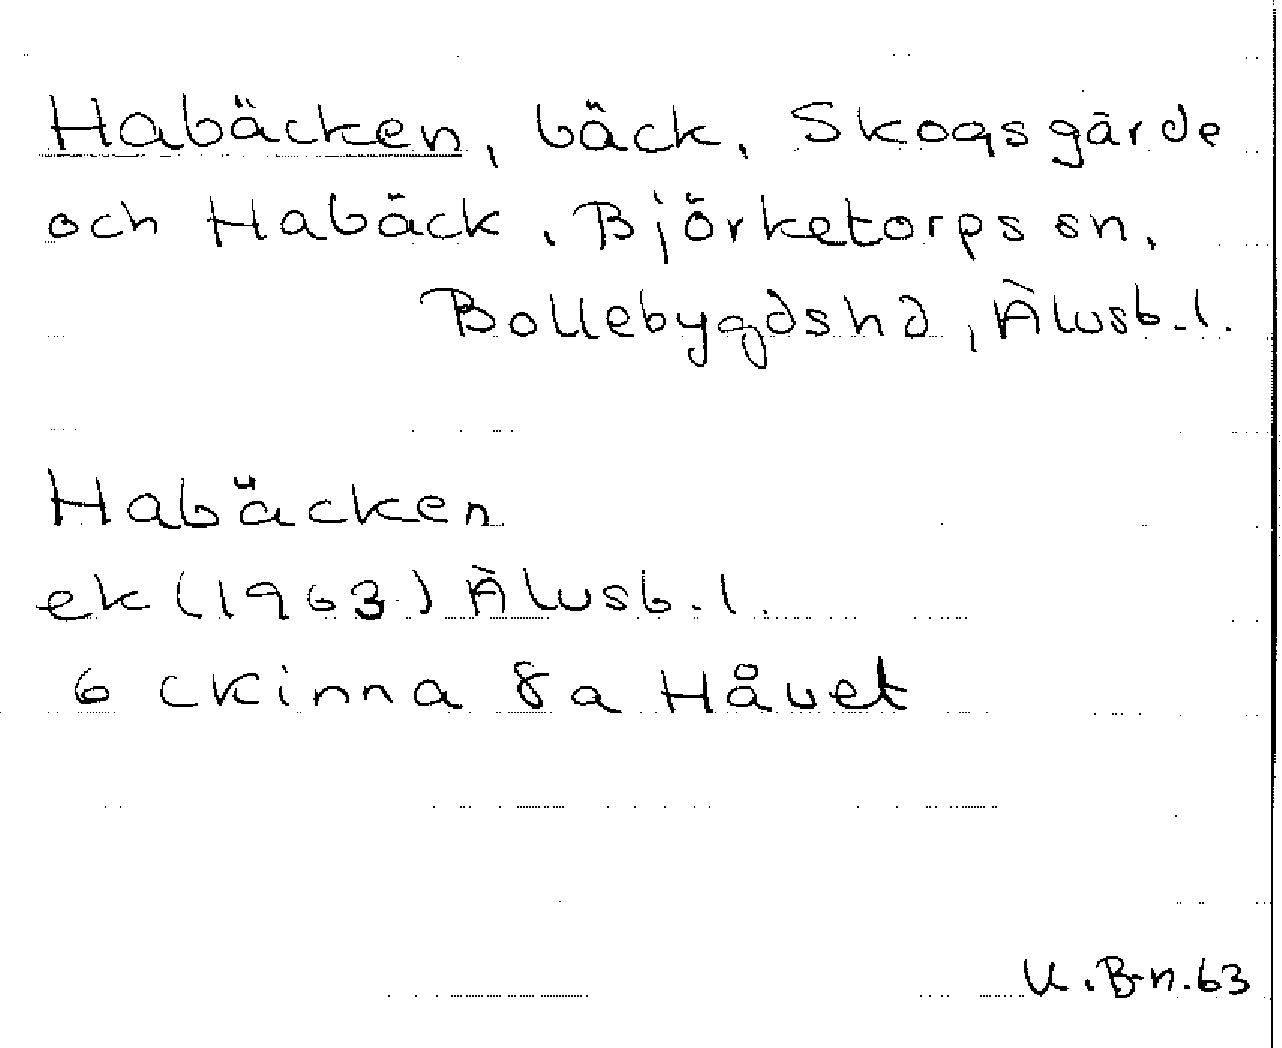 Habäcken, bäck, Skogsgärde
och Habäck, Björketorps sn,
Bollebygdshd, Älvsb.l.
Habäcken
ek (1963) Älvsb.l.
6 C Kinna 8a Håvet
U.B-n.63